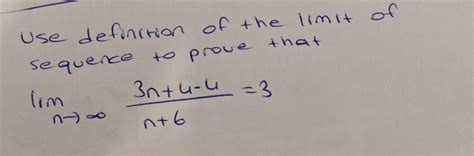 Use definition of the limit of
sequence to prove that
lim n→∞ (3n+4-4)/(n+6) = 3